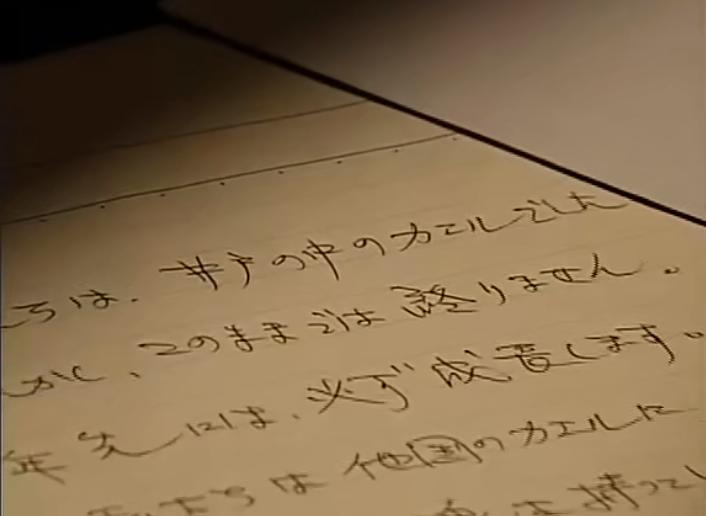 ちは、井戸の中のカエルでした
かし、このままでは終りません。
年先には、必ず成長します。
たちは他国のカエルに
は持ってい